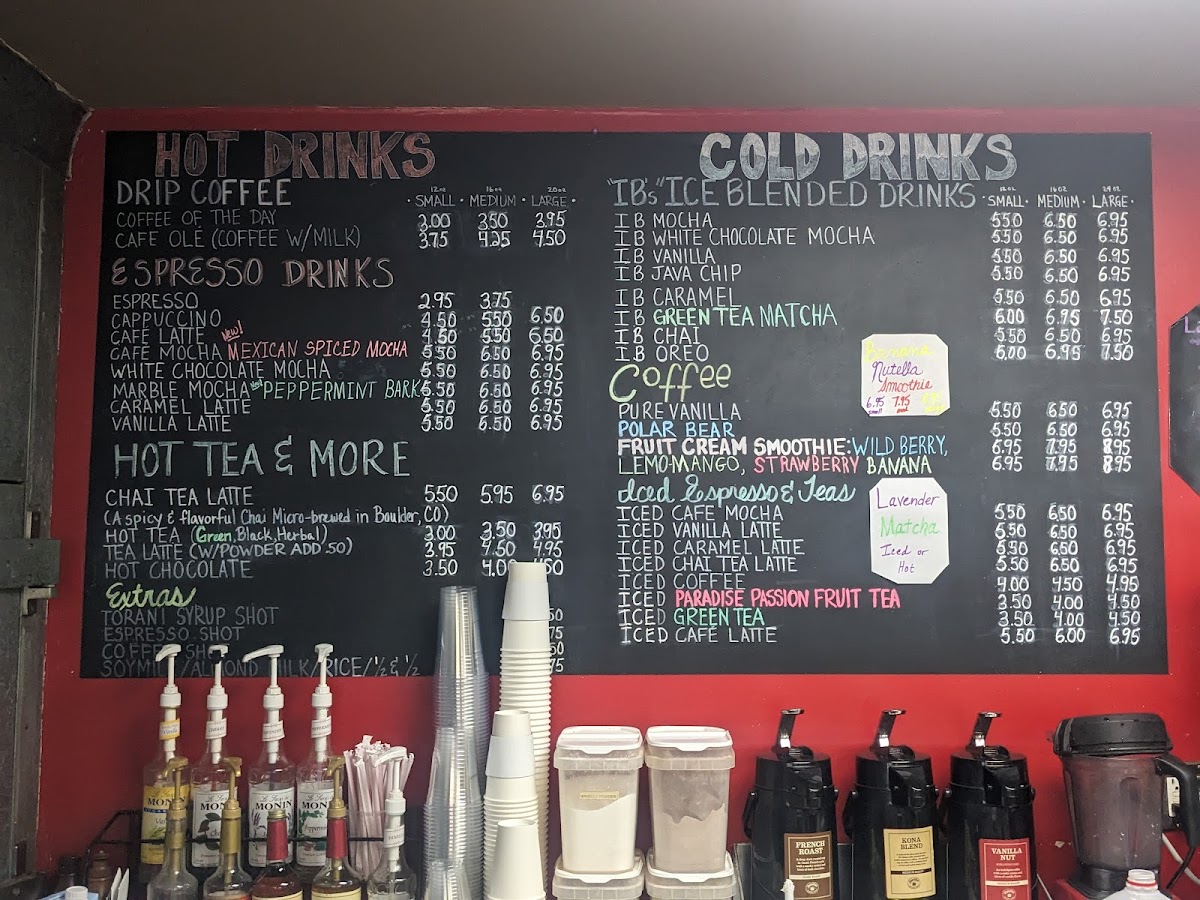 HOT DRINKS
DRIP COFFEE
12oz 16oz 20oz
· SMALL · MEDIUM · LARGE ·
COFFEE OF THE DAY 3.00 3.50 3.95
CAFE OLÉ (COFFEE W/MILK) 3.75 4.25 4.50
ESPRESSO DRINKS
ESPRESSO 2.95 3.75
CAPPUCCINO 4.50 5.50 6.50
CAFE LATTE 4.50 5.50 6.50
CAFE MOCHA New! MEXICAN SPICED MOCHA 5.50 6.50 6.95
WHITE CHOCOLATE MOCHA 5.50 6.50 6.95
MARBLE MOCHA PEPPERMINT BARK 5.50 6.50 6.95
CARAMEL LATTE 5.50 6.50 6.95
VANILLA LATTE 5.50 6.50 6.95
HOT TEA & MORE
CHAI TEA LATTE 5.50 5.95 6.95
(A spicy & flavorful Chai Micro-brewed in Boulder, CO)
HOT TEA (Green, Black, Herbal) 3.00 3.50 3.95
TEA LATTE (W/POWDER ADD .50) 3.95 4.50 4.95
HOT CHOCOLATE 3.50 4.00 4.50
Extras
TORANI SYRUP SHOT
ESPRESSO SHOT
COFFEE SHOT
SOYMILK/ALMOND MILK/RICE/½ & ½
COLD DRINKS
"IB's" ICE BLENDED DRINKS
12oz 16oz 24oz
· SMALL · MEDIUM · LARGE ·
IB MOCHA 5.50 6.50 6.95
IB WHITE CHOCOLATE MOCHA 5.50 6.50 6.95
IB VANILLA 5.50 6.50 6.95
IB JAVA CHIP 5.50 6.50 6.95
IB CARAMEL 5.50 6.50 6.95
IB GREEN TEA MATCHA 6.00 6.95 7.50
IB CHAI 5.50 6.50 6.95
IB OREO 6.00 6.95 7.50
Coffee
PURE VANILLA 5.50 6.50 6.95
POLAR BEAR 5.50 6.50 6.95
FRUIT CREAM SMOOTHIE: WILD BERRY, 6.95 7.95 8.95
LEMO-MANGO, STRAWBERRY BANANA 6.95 7.95 8.95
Iced Espresso & Teas
ICED CAFE MOCHA 5.50 6.50 6.95
ICED VANILLA LATTE 5.50 6.50 6.95
ICED CARAMEL LATTE 5.50 6.50 6.95
ICED CHAI TEA LATTE 5.50 6.50 6.95
ICED COFFEE 4.00 4.50 4.95
ICED PARADISE PASSION FRUIT TEA 3.50 4.00 4.50
ICED GREEN TEA 3.50 4.00 4.50
ICED CAFÉ LATTE 5.50 6.00 6.95
Banana
Nutella
Smoothie
6.95 7.95
small med
Lavender
Matcha
Iced or
Hot
MONIN
MONIN
MONIN
MONIN
FRENCH
ROAST
KONA
BLEND
VANILLA
NUT